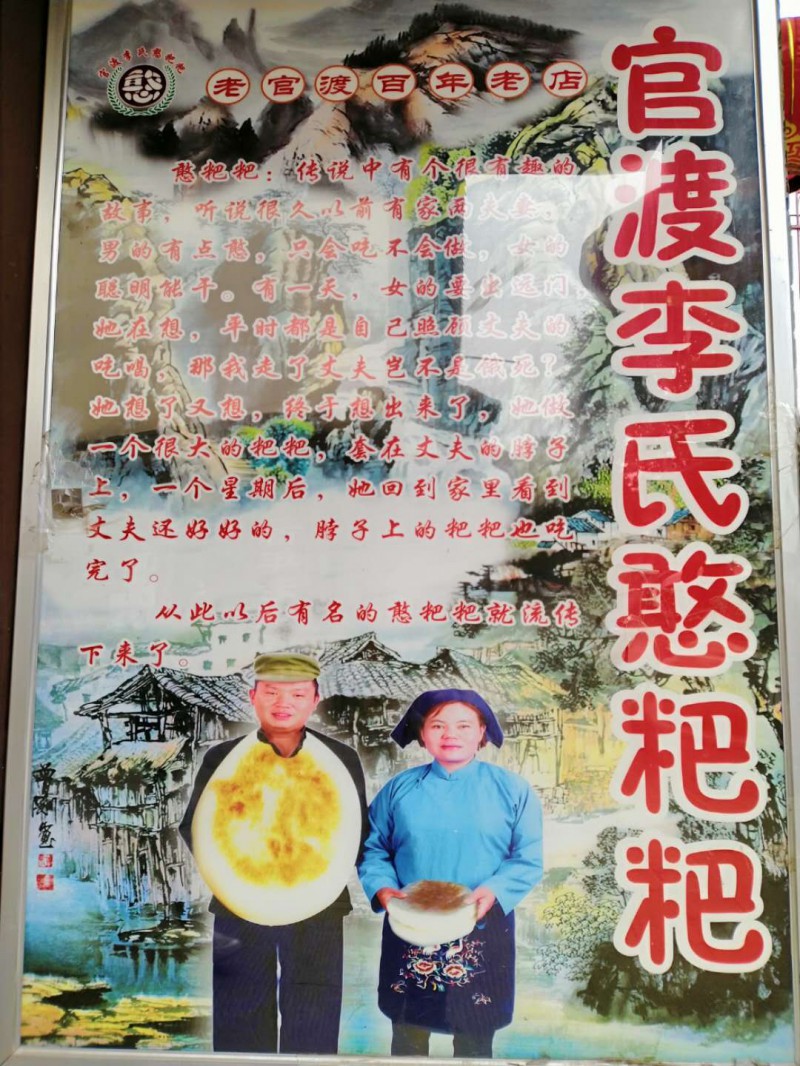 官渡李氏憨粑粑
憨
老官渡百年老店
官渡李氏憨粑粑
憨粑粑：传说中有个很有趣的
故事，听说很久以前有家两夫妻，
男的有点憨，只会吃不会做，女的
聪明能干。有一天，女的要出远门，
她在想，平时都是自己照顾丈夫的
吃喝，那我走了丈夫岂不是饿死？
她想了又想，终于想出来了，她做
一个很大的粑粑，套在丈夫的脖子
上，一个星期后，她回到家里看到
丈夫还好好的，脖子上的粑粑也吃
完了。
从此以后有名的憨粑粑就流传
下来了。